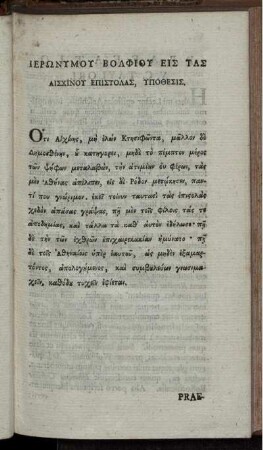 ΙΕΡΩΝΥΜΟΥ ΒΟΛΦΙΟΥ ΕΙΣ ΤΑΣ
ΑΙΣΧΙΝΟΥ ΕΠΙΣΤΟΛΑΣ, ΥΠΟΘΕΣΙΣ.
Ὅτι Αἰσχίνης, μὴ ἑλὼν Κτησιφῶντα, μᾶλλον δὲ
Δημοσθένην, οὗ κατηγόρει, μηδὲ τὸ πέμπτον μέρος
τῶν ψήφων μεταλαβὼν, τὴν ἀτιμίαν οὐ φέρων, τὰς
μὲν Ἀθήνας ἀπέλιπεν, εἰς δὲ Ῥόδον μετῴκησεν, παντί
που γνώριμον. ἐκεῖ τοίνυν ταυτασὶ τὰς ἐπιστολὰς
σχεδὸν ἁπάσας γράψας, πῆ μὲν τοῖς φίλοις τάς τε
ἀποδημίας, καὶ τἄλλα τὰ καθ' αὑτὸν ἐδήλωσε· πῆ
δὲ τὴν τῶν ἐχθρῶν ἐπιχαιρεκακίαν ἠμύνατο· πῆ
δὲ τοῖς Ἀθηναίοις ὑπὲρ ἑαυτοῦ, ὡς μηδὲν ἐξαμαρτόντος,
ἀπολογούμενος, καὶ συμβουλίων
καθόδου τυχεῖν ἐφίεται.
PRAE-